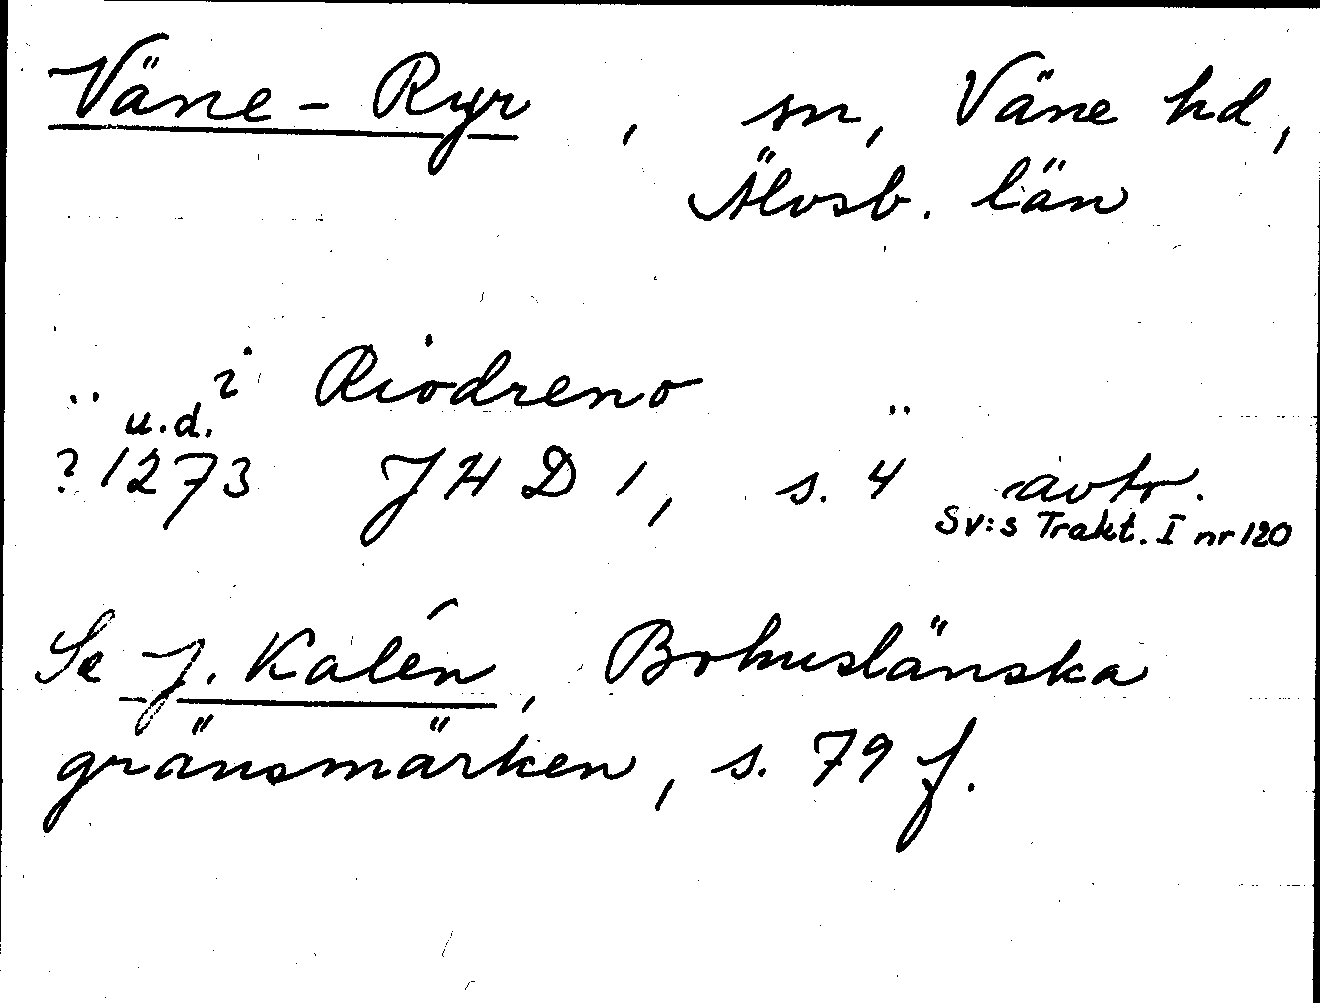 Väne-Ryr, sn, Väne hd,
Älvsb. län
i Riodreno
u.d.
? 1273 JHD 1, s. 4 avtr.
Sv:s Trakt. I nr 120
Se J. Kalén, Bohuslänska
gränsmärken, s. 79 f.